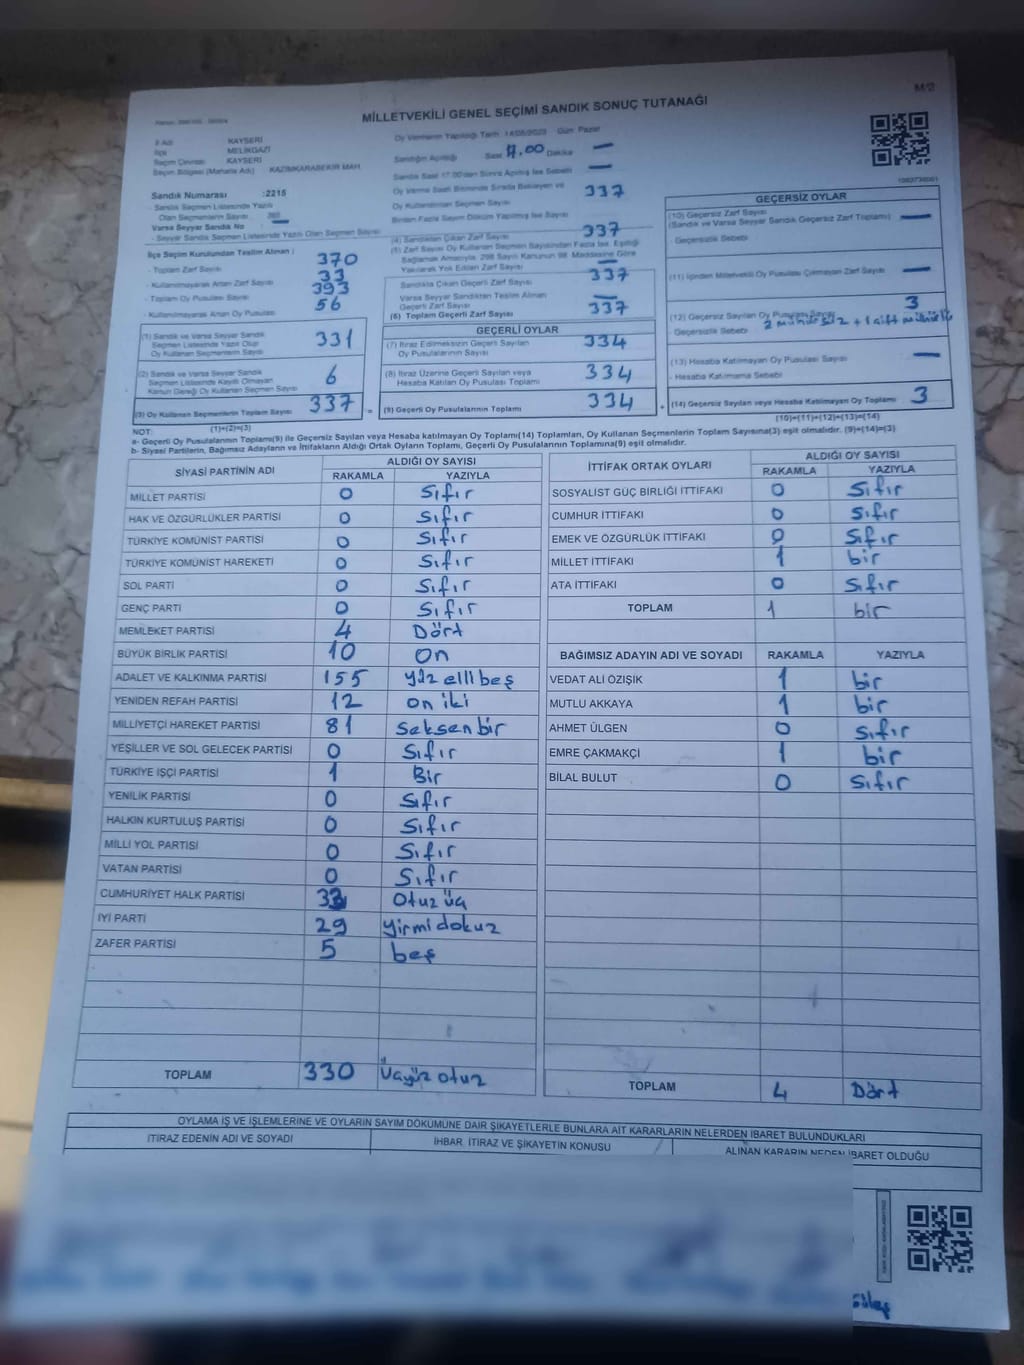 M/2
MİLLETVEKİLİ GENEL SEÇİMİ SANDIK SONUÇ TUTANAĞI
İl Adı KAYSERİ
İlçe MELİKGAZİ
Seçim Çevresi KAYSERİ
Seçim Bölgesi (Mahalle Adı) KAZIMKARABEKİR MAH.
Sandık Numarası :2215
- Sandık Seçmen Listesinde Yazılı
Olan Seçmenlerin Sayısı
Varsa Seyyar Sandık No —
- Seyyar Sandık Seçmen Listesinde Yazılı Olan Seçmen Sayısı
İlçe Seçim Kurulundan Teslim Alınan :
- Toplam Zarf Sayısı 370
- Kullanılmayarak Artan Zarf Sayısı 33
- Toplam Oy Pusulası Sayısı 393
- Kullanılmayarak Artan Oy Pusulası 56
(1) Sandık ve Varsa Seyyar Sandık
Seçmen Listesinde Yazılı Olup
Oy Kullanan Seçmenlerin Sayısı 331
(2) Sandık ve Varsa Seyyar Sandık
Seçmen Listesinde Kayıtlı Olmayan
Kanun Gereği Oy Kullanan Seçmen Sayısı 6
(3) Oy Kullanan Seçmenlerin Toplam Sayısı 337
(1)+(2)=(3)
Oy Vermenin Yapıldığı Tarih 14/05/2023 Gün Pazar
Sandığın Açıldığı Saat 17.00 Dakika —
Sandık Saat 17:00'den Sonra Açılmış İse Sebebi —
Oy Verme Saati Bitiminde Sırada Bekleyen ve
Oy Kullandırılan Seçmen Sayısı 337
Birden Fazla Sayım Döküm Yapılmış İse Sayısı
(4) Sandıktan Çıkan Zarf Sayısı 337
(5) Zarf Sayısı Oy Kullanan Seçmen Sayısından Fazla İse, Eşitliği
Sağlamak Amacıyla, 298 Sayılı Kanunun 98. Maddesine Göre
Yakılarak Yok Edilen Zarf Sayısı —
Sandıkta Çıkan Geçerli Zarf Sayısı 337
Varsa Seyyar Sandıktan Teslim Alınan
Geçerli Zarf Sayısı —
(6) Toplam Geçerli Zarf Sayısı 337
GEÇERLİ OYLAR
(7) İtiraz Edilmeksizin Geçerli Sayılan
Oy Pusulalarının Sayısı 334
(8) İtiraz Üzerine Geçerli Sayılan veya
Hesaba Katılan Oy Pusulası Toplamı 334
= (9) Geçerli Oy Pusulalarının Toplamı 334 +
GEÇERSİZ OYLAR
(10) Geçersiz Zarf Sayısı
(Sandık ve Varsa Seyyar Sandık Geçersiz Zarf Toplamı) —
Geçersizlik Sebebi
(11) İçinden Milletvekili Oy Pusulası Çıkmayan Zarf Sayısı —
(12) Geçersiz Sayılan Oy Pusulası Sayısı 3
Geçersizlik Sebebi 2 mühürsüz + 1 çift mühürlü
(13) Hesaba Katılmayan Oy Pusulası Sayısı —
- Hesaba Katılmama Sebebi
(14) Geçersiz Sayılan veya Hesaba Katılmayan Oy Toplamı 3
(10)+(11)+(12)+(13)=(14)
NOT:
a- Geçerli Oy Pusulaları Toplamı(9) ile Geçersiz Sayılan veya Hesaba katılmayan Oy Toplamı(14) Toplamları, Oy Kullanan Seçmenlerin Toplam Sayısına(3) eşit olmalıdır. (9)+(14)=(3)
b- Siyasi Partilerin, Bağımsız Adayların ve İttifakların Aldığı Ortak Oyların Toplamı, Geçerli Oy Pusulalarının Toplamına(9) eşit olmalıdır.
SİYASİ PARTİNİN ADI ALDIĞI OY SAYISI
RAKAMLA YAZIYLA
MİLLET PARTİSİ 0 Sıfır
HAK VE ÖZGÜRLÜKLER PARTİSİ 0 Sıfır
TÜRKİYE KOMÜNİST PARTİSİ 0 Sıfır
TÜRKİYE KOMÜNİST HAREKETİ 0 Sıfır
SOL PARTİ 0 Sıfır
GENÇ PARTİ 0 Sıfır
MEMLEKET PARTİSİ 4 Dört
BÜYÜK BİRLİK PARTİSİ 10 on
ADALET VE KALKINMA PARTİSİ 155 yüz elli beş
YENİDEN REFAH PARTİSİ 12 on iki
MİLLİYETÇİ HAREKET PARTİSİ 81 seksen bir
YEŞİLLER VE SOL GELECEK PARTİSİ 0 Sıfır
TÜRKİYE İŞÇİ PARTİSİ 1 Bir
YENİLİK PARTİSİ 0 Sıfır
HALKIN KURTULUŞ PARTİSİ 0 Sıfır
MİLLİ YOL PARTİSİ 0 Sıfır
VATAN PARTİSİ 0 Sıfır
CUMHURİYET HALK PARTİSİ 33 Otuz üç
İYİ PARTİ 29 yirmi dokuz
ZAFER PARTİSİ 5 beş
TOPLAM 330 Üçyüz otuz
İTTİFAK ORTAK OYLARI ALDIĞI OY SAYISI
RAKAMLA YAZIYLA
SOSYALİST GÜÇ BİRLİĞİ İTTİFAKI 0 Sıfır
CUMHUR İTTİFAKI 0 Sıfır
EMEK VE ÖZGÜRLÜK İTTİFAKI 0 Sıfır
MİLLET İTTİFAKI 1 bir
ATA İTTİFAKI 0 Sıfır
TOPLAM 1 bir
BAĞIMSIZ ADAYIN ADI VE SOYADI RAKAMLA YAZIYLA
VEDAT ALİ ÖZIŞIK 1 bir
MUTLU AKKAYA 1 bir
AHMET ÜLGEN 0 Sıfır
EMRE ÇAKMAKÇI 1 bir
BİLAL BULUT 0 Sıfır
TOPLAM 4 Dört
OYLAMA İŞ VE İŞLEMLERİNE VE OYLARIN SAYIM DÖKÜMÜNE DAİR ŞİKAYETLERLE BUNLARA AİT KARARLARIN NELERDEN İBARET BULUNDUKLARI
İTİRAZ EDENİN ADI VE SOYADI İHBAR, İTİRAZ VE ŞİKAYETİN KONUSU ALINAN KARARIN NEDEN İBARET OLDUĞU